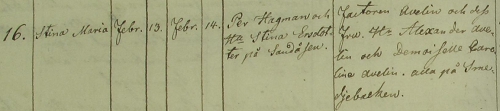 16. Stina Maria Febr. 13. Febr. 14. Per Hagman och
Hu Stina Ersdot-
ter på Sandåsen.
factoren Avelin och dess
fru. Hr Alexander Ave-
lin och Demoiselle Caro-
lina Avelin. alla på Sme-
djebacken.